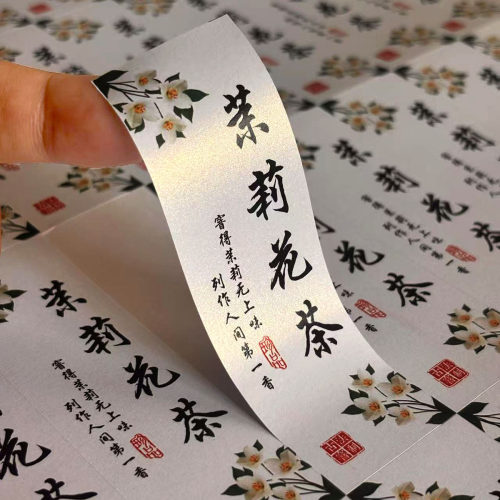 茉莉花茶
窨得茉莉无上味
列作人间第一香